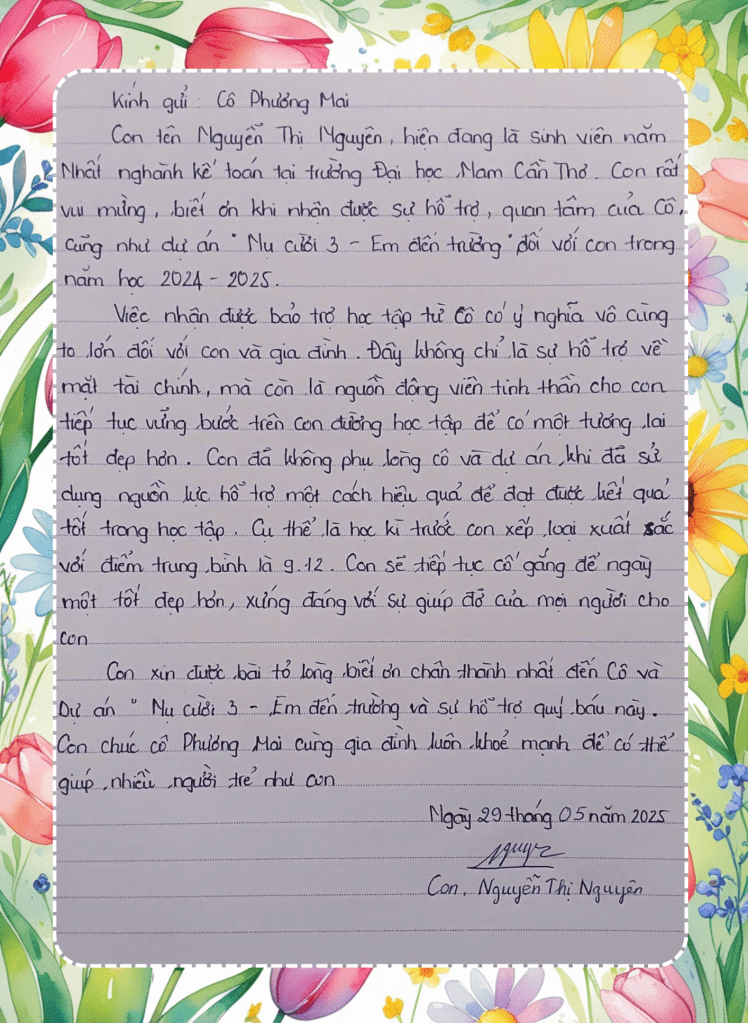 Kính gửi : Cô Phương Mai
Con tên Nguyễn Thị Nguyên, hiện đang là sinh viên năm
Nhất nghành kế toán tại trường Đại học Nam Cần Thơ. Con rất
vui mừng, biết ơn khi nhận được sự hỗ trợ, quan tâm của Cô,
cũng như dự án " Nụ cười 3 - Em đến trường " đối với con trong
năm học 2024 - 2025.
Việc nhận được bảo trợ học tập từ Cô có ý nghĩa vô cùng
to lớn đối với con và gia đình. Đây không chỉ là sự hỗ trợ về
mặt tài chính, mà còn là nguồn động viên tinh thần cho con
tiếp tục vững bước trên con đường học tập để có một tương lai
tốt đẹp hơn. Con đã không phụ lòng cô và dự án khi đã sử
dụng nguồn lực hỗ trợ một cách hiệu quả để đạt được kết quả
tốt trong học tập. Cụ thể là học kì trước con xếp loại xuất sắc
với điểm trung bình là 9.12. Con sẽ tiếp tục cố gắng để ngày
một tốt đẹp hơn, xứng đáng với sự giúp đỡ của mọi người cho
con
Con xin được bài tỏ lòng biết ơn chân thành nhất đến Cô và
Dự án " Nụ cười 3 - Em đến trường và sự hỗ trợ quý báu này.
Con chúc cô Phương Mai cùng gia đình luôn khoẻ mạnh để có thể
giúp nhiều người trẻ như con
Ngày 29 tháng 05 năm 2025
Con, Nguyễn Thị Nguyên